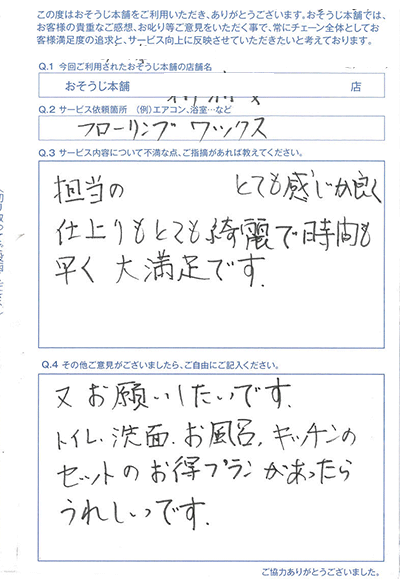 この度はおそうじ本舗をご利用いただき、ありがとうございます。おそうじ本舗では、
お客様の貴重なご感想、お叱り等ご意見をいただく事で、常にチェーン全体としてお
客様満足度の追求と、サービス向上に反映させていただきたいと考えております。
Q.1 今回ご利用されたおそうじ本舗の店舗名
おそうじ本舗 店
Q.2 サービス依頼箇所 (例)エアコン、浴室…など
フローリング ワックス
Q.3 サービス内容について不満な点、ご指摘があれば教えてください。
担当の とても感じが良く
仕上りもとても綺麗で時間も
早く 大満足です.
Q.4 その他ご意見がございましたら、ご自由にご記入ください。
又お願いしたいです.
トイレ.洗面.お風呂,キッチンの
セットのお得プランがあったら
うれしいです.
ご協力ありがとうございました。